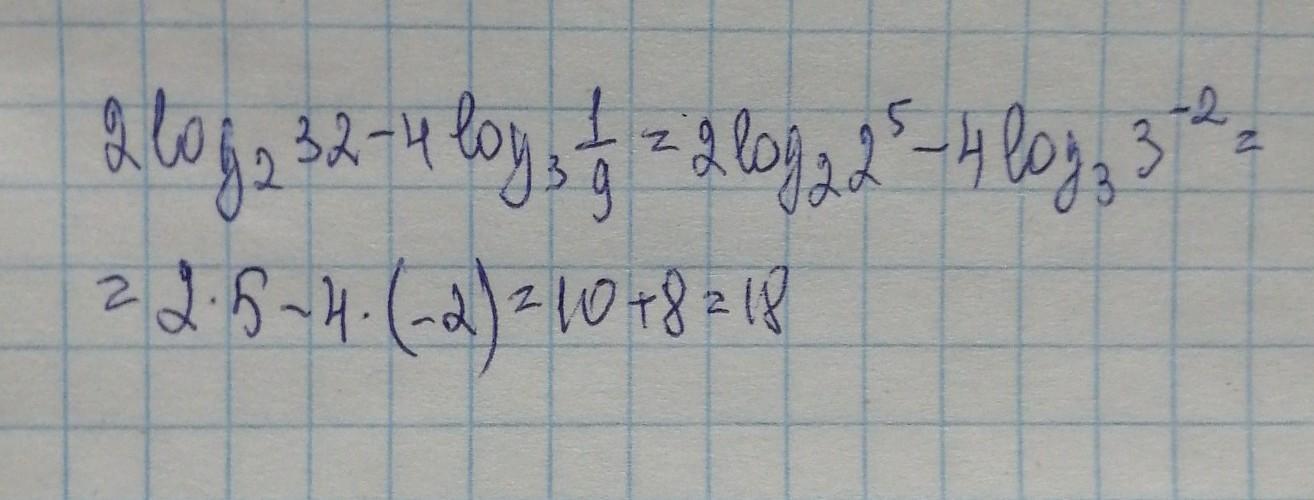 2 log₂ 32 - 4 log₃ 1/9 = 2 log₂ 2⁵ - 4 log₃ 3⁻² =
= 2 · 5 - 4 · (-2) = 10 + 8 = 18